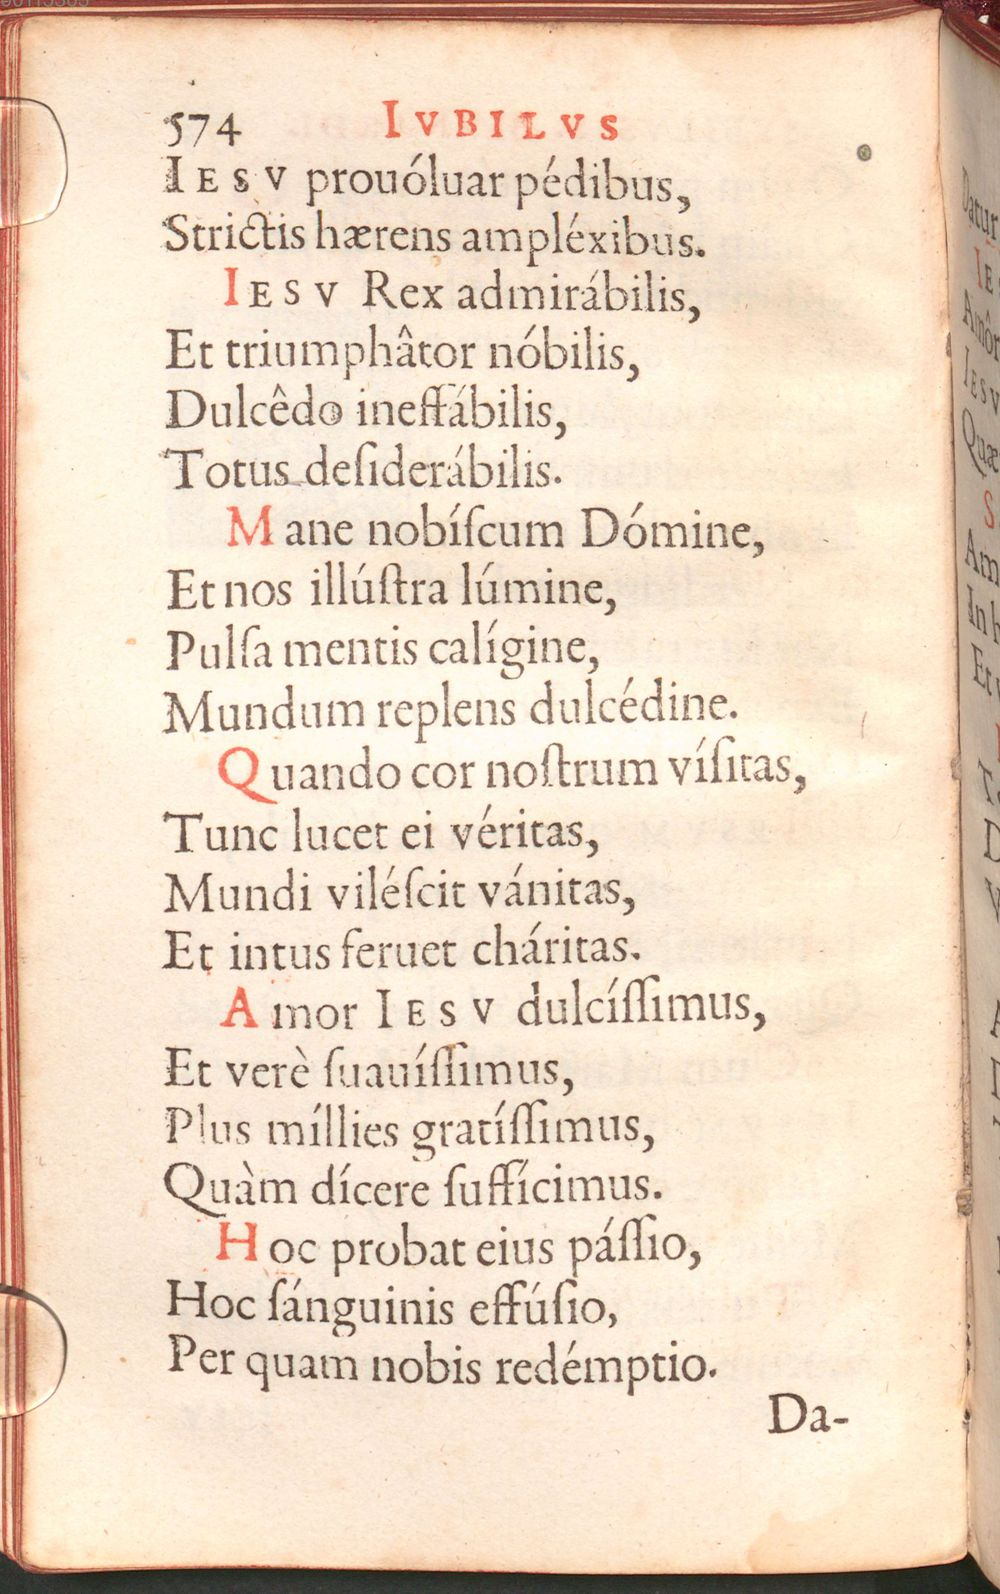 574 IVBILVS
IESV prouóluar pédibus,
Strictis hærens ampléxibus.
IESV Rex admirábilis,
Et triumphâtor nóbilis,
Dulcêdo ineffábilis,
Totus deſiderábilis.
Mane nobíſcum Dómine,
Et nos illúſtra lúmine,
Pulſa mentis calígine,
Mundum replens dulcédine.
Quando cor noſtrum víſitas,
Tunc lucet ei véritas,
Mundi viléſcit vánitas,
Et intus feruet cháritas.
Amor IESV dulcíſſimus,
Et verè ſuauíſſimus,
Plus míllies gratíſſimus,
Quàm dícere ſuffícimus.
Hoc probat eius páſſio,
Hoc ſánguinis effúſio,
Per quam nobis redémptio.
Da-